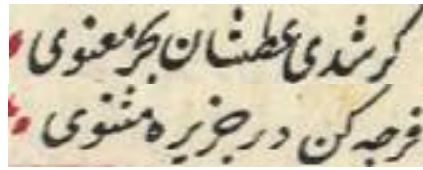 کر شدی عطشان بحر معنوی
فرجه کن در جزیره مثنوی